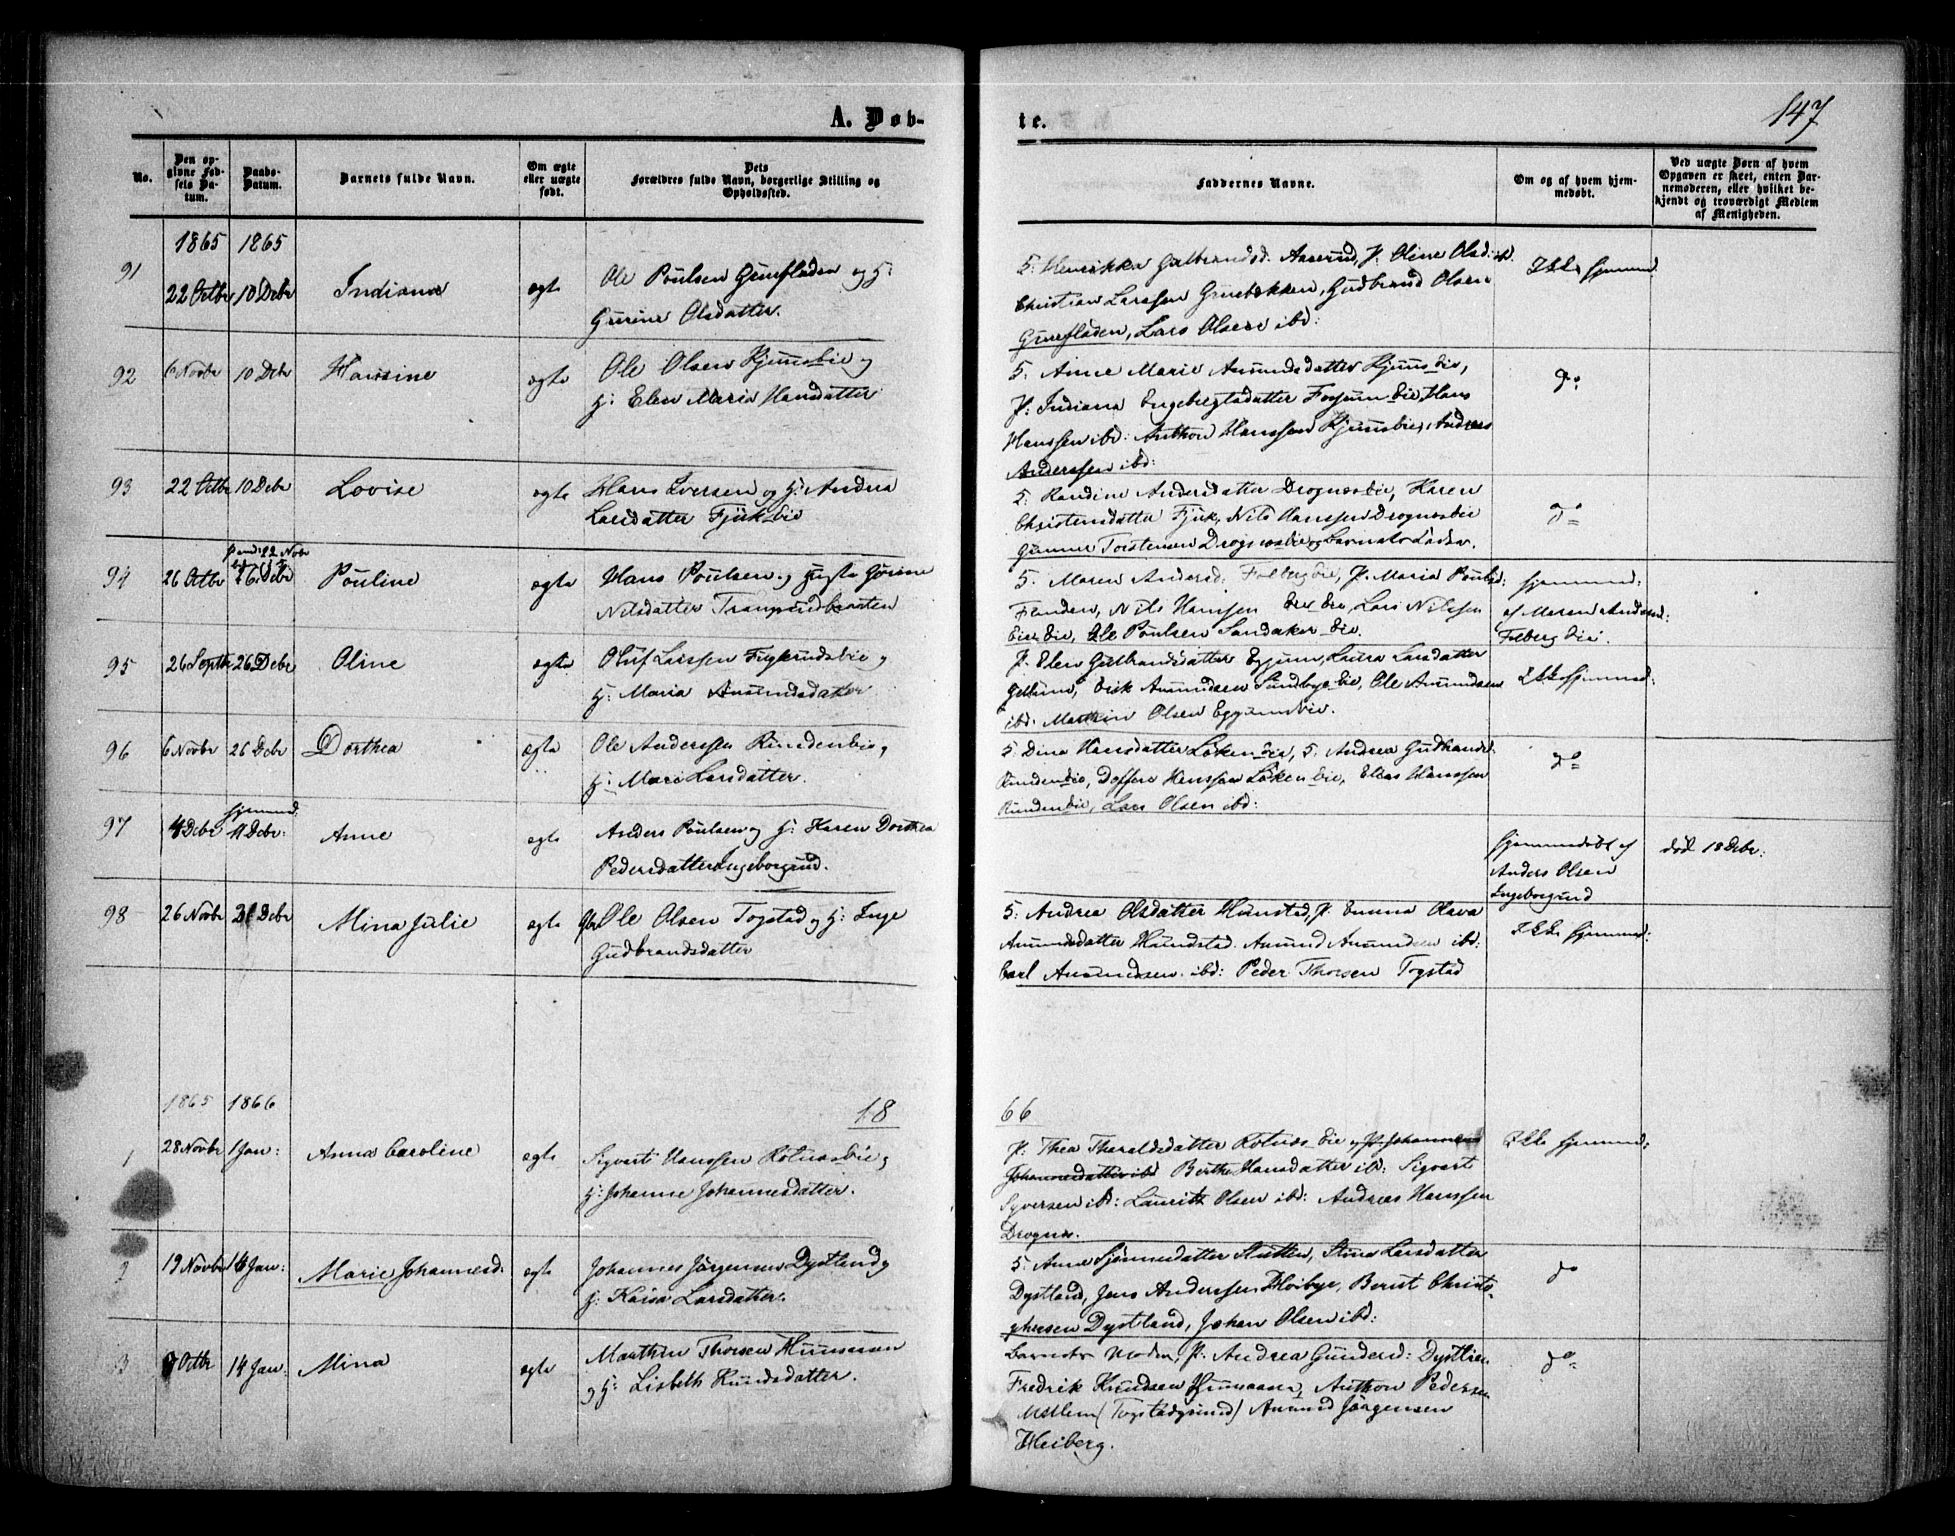 A. Døb-
te.
147
No.
Den op-
givne Fød-
sels Da-
tum.
Daabs-
Datum.
Barnets fulde Navn.
Om ægte
eller uægte
født.
Dets
Forældres fulde Navn, borgerlige Stilling og
Opholdssted.
Faddernes Navne.
Om og af hvem hjem-
medøbt.
Ved uægte Børn af hvem
Opgaven er skeet, enten Bar-
nemoderen, eller hvilket be-
kjendt og troværdigt Medlem
af Menigheden.
1865 1865
91
22 Octbr 10 Debr
Indiana
ægte
Ole Poulsen Grinefladen og H:
Gurine Olsdatter.
5: Henrikka Gulbrandsd. Aaserud, P: Oline Olsd: ibd.
Christian Larssen Grinebækken, Gudbrand Olsen
Grinefladen, Lars Olsen ibd:
Ikke hjemmed:
92
6 Novbr 10 Debr
Hansine
ægte
Ole Olsen Kjumsbie og
H: Elen Maria Hansdatter
5. Anne Marie Amundsdatter Kjumsbie,
P: Indiana Engebregtsdatter Fossum bie, Hans
Hanssen ibd: Anthon Hanssen Kjumsbie, Andreas
Anderssen ibd:
do
93
22 Octbr 10 Debr
Lovise
ægte
Hans Iversen og H: Andrea
Larsdatter Fjuk bie
5: Randine Andersdatter Drognesbie, Karen
Christensdatter Fjuk, Nils Hanssen Drognesbie
Gunner Torstensen Drognesbie og Barnets Fader.
do
94
22 Novbr
26 Octbr 26 Debr
Pouline
ægte
Hans Poulsen og Hustr. Gurine
Nilsdatter Tranrudbraaten
5. Maren Andersd: Folberg bie, P. Maria Poulsd:
Flauden, Nils Hanssen Eier bie, Lars Nilssen
Eier bie, Ole Poulsen Sandaker bie.
hjemmed:
af Maren Andersd:
Folberg bie.
95
26 Septbr 26 Debr
Oline
ægte
Oluf Larssen Fuglerudsbie og
H: Maria Amundsdatter
P. Elen Gulbrandsdatter Eggum, Laura Larsdatter
Erik Amundsen Sundbye bie, Ole Amundsen
ibd. Martin Olsen Eggumsbie.
Ikke hjemmed:
96
6 Novbr 26 Debr
Dorthea
ægte
Ole Anderssen Rundenbie og
H: Mari Larsdatter.
5: Dina Hansdatter Løken bie, 5: Andrea Gudbrandsd.
Rundenbie, Hanssen Løken bie, Elias Hanssen
Rundenbie, Lars Olsen ibd:
do
97
hjemmed:
4 Debr 11 Debr:
Anne
ægte
Anders Poulsen og H: Karen Dorthea
Pedersdatter Ingeborgrud.
hjemmedøbt af
Anders Olsen
Ingeborgrud
død 18 Debr:
98
26 Novbr 31 Debr
Mina Julie
ægte
Ole Olsen Togstad og H: Inge
Gudbrandsdatter
5: Andrea Olsdatter Hunstad, P: Emma Olava
Amundsdatter Hundstad. Amund Amundsen ibd:
Carl Amundssen ibd: Peder Thorsen Togstad
Ikke hjemmed:
1865 1866
18
66
1
28 Novbr 1 Jan:
Anna Caroline
ægte
Sigvart Hanssen Rotnesbie og
H: Johanne Johannesdatter.
P. Thea Tharaldsdatter Rotnes bie og P. Johannesen
Johannesdatter ibd Berthe Hansdatter ibd: Sigvart
Syversen ibd: Lauritz Olsen ibd: Andreas Hanssen
Drognes.
Ikke hjemmed:
2
19 Novbr 14 Jan:
Marie Johannesd.
ægte
Johannes Jørgensen Dystland og
H: Kaisa Larsdatter.
5. Anne Sjønnesdatter Slutten, Stina Larsdatter
Dystland, Jens Anderssen Høibye, Bernt Christo-
phersen Dystland, Johan Olsen ibd:
do
3
7 Octbr 14 Jan:
Mina
ægte
Marthin Thorsen Hunsaan
og H: Lisbeth Knudsdatter.
Barnets Moder, P: Andrea Gundersd: Dystlien
Fredrik Knudsen Hunsaan, Anthon Pedersen
Mellem (Togstadgrind) Amund Jørgensen
Heiberg.
do